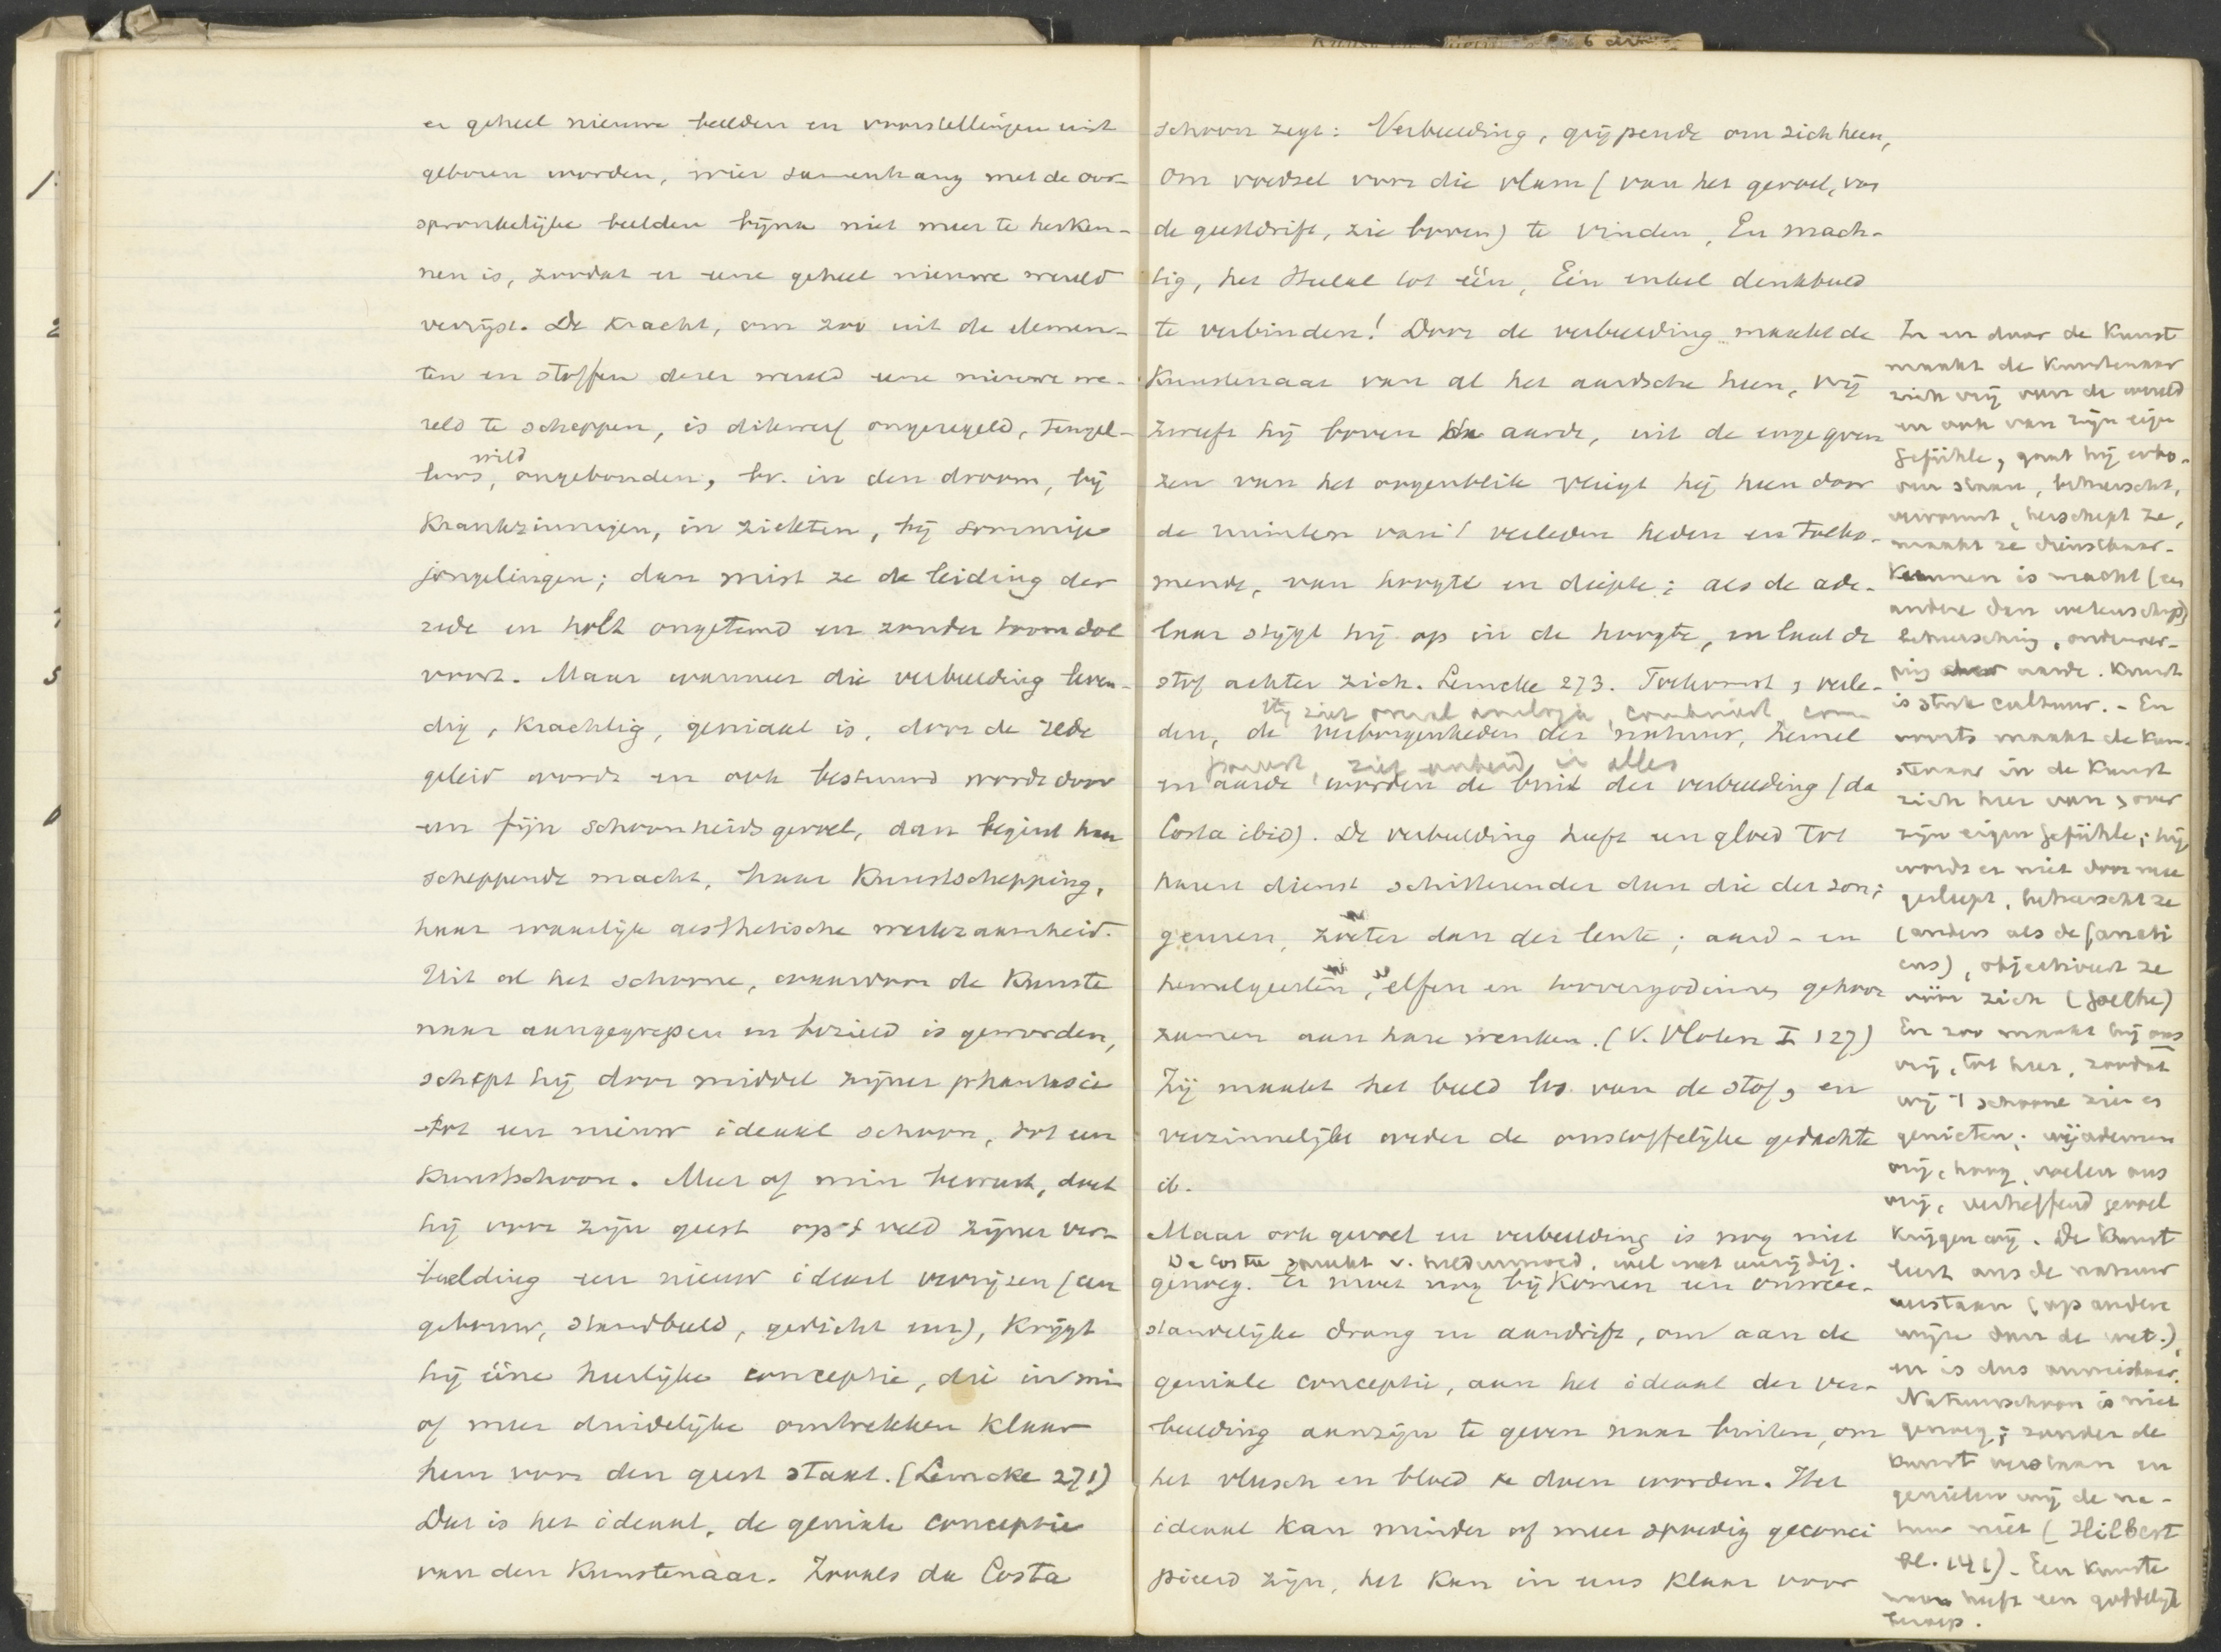 er geheel nieuwe beelden en voorstellingen uit
geboren worden, wier samenhang met de oor-
spronkelijke beelden bijna niet meer te herken-
nen is, zoodat er eene geheel nieuwe wereld
verrijst. De kracht, om zoo uit de elemen-
ten en stoffen dezer wereld eene nieuwe we-
reld te scheppen, is dikwerf ongeregeld, teugel-
wild
loos, ongebonden, bv. in den droom, bij
krankzinnigen, in ziekten, bij sommige
jongelingen; dan mist ze de leiding der
rede en holt ongetemd en zonder toom dol
voort. Maar wanneer die verbeelding leven-
dig, krachtig, geniaal is, door de rede
geleid wordt en ook bestuurd wordt door
een fijn schoonheidsgevoel, dan begint haar
scheppende macht, haar kunstschepping,
haar waarlijk aesthetische werkzaamheid.
Uit al het schoone, waardoor de kunste
naar aangegrepen en bezield is geworden,
schept hij door middel zijner phantasie
tot een nieuw ideaal schoon, tot een
kunstschoon. Meer of min bewust, doet
hij voor zijn geest op 't veld zijner ver-
beelding een nieuw ideaal verrijzen (een
gebouw, standbeeld, gedicht enz), krijgt
hij eene heerlijke conceptie, die in min
of meer duidelijke omtrekken klaar
hem voor den geest staat. (Lemcke 271)
Dat is het ideaal, de geniale conceptie
van den kunstenaar. Zooals da Costa
schoon zegt: Verbeelding, grijpende om zich heen,
Om voedsel voor die vlam (van het gevoel, van
de geestdrift, zie boven) te vinden, En mach-
tig, het Heelal tot één, Eén enkel denkbeeld
te verbinden! Door de verbeelding maakt de
kunstenaar van al het aardsche heen, vrij
zweeft hij boven de aarde, uit de enge gren
zen van het oogenblik vliegt hij heen door
de ruimten van 't verleden heden en toeko-
mende, van hoogte en diepte; als de ade-
laar stijgt hij op in de hoogte, en laat de
stof achter zich. Lemcke 273. Toekomst, verle-
Hij ziet overal analogie, combineert, com-
den, de verborgenheden der natuur, hemel
poneert, ziet eenheid in alles
en aarde worden de buit der verbeelding (da
Costa ibid). De verbeelding heeft een gloed tot
haren dienst schitterender dan die der zon;
geuren, zoeter dan der lente; aard- en
hemelgeesten, elfen en toovergodinnen gehoor
zamen aan hare wenken. (V. Vloten I 127)
Zij maakt het beeld los van de stof, en
verzinnelijkt weder de onstoffelijke gedachte
ib.
Maar ook gevoel en verbeelding is nog niet
Da Costa spreekt v. heldenmoed, wel wat eenzijdig.
genoeg. Er moet nog bij komen een onweer-
standelijke drang en aandrift, om aan de
geniale conceptie, aan het ideaal der ver-
beelding aanzijn te geven naar buiten, om
het vleesch en bloed te doen worden. Het
ideaal kan minder of meer spoedig geconci
pieerd zijn, het kan in eens klaar voor
In en door de Kunst
maakt de Kunstenaar
zich vrij van de wereld
en ook van zijn eigen
Gefühle, gaat hij erbo-
ven staan, beheerscht,
verwint, herschept ze,
maakt ze dienstbaar.
Kunnen is macht (een
andere dan wetenschap)
beheersching, onderwer-
ping aarde. Kunst
is stuk cultuur. - En
voorts maakt de kun-
stenaar in de Kunst
zich heer van, over
zijn eigen Gefühle; hij
wordt er niet door mee
gesleept, beheerscht ze
(anders als de fanati
cus), objectiveert ze
vóór zich (Goethe)
En zoo maakt hij ons
vrij, tot heer, zoodat
wij 't schoone zien en
genieten; wij ademen
vrij, hoog, voelen ons
vrij, verheffend gevoel
krijgen wij. De Kunst
leert ons de natuur
verstaan (op andere
wijze dan de wet.),
en is dus onmisbaar.
Natuurschoon is niet
genoeg; zonder de
kunst verstaan en
genieten wij de na-
tuur niet (Hilbert
bl. 141). Een kunste
naar heeft een goddelijk
beroep.